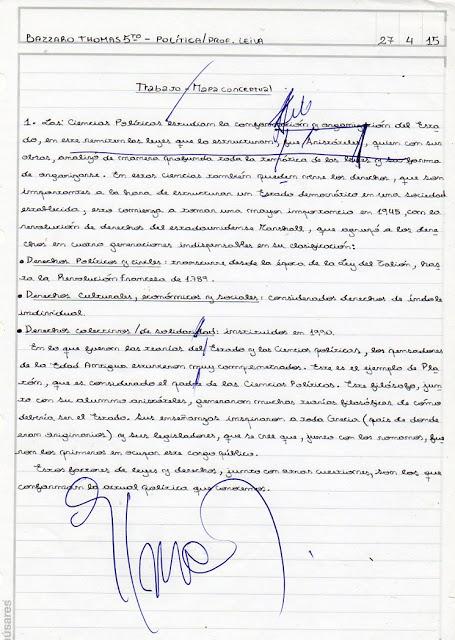 BAZZARO THOMAS 5TO - POLÍTICA/PROF. LEIVA 27 4 15
Trabajo - Mapa conceptual
1. Las Ciencias Políticas estudian la conformación y organización del Esta-
do, en este remiran las leyes que lo estructuran, fue Aristóteles, quien con sus
obras, analizó de manera profunda toda la temática de las leyes y su forma
de organizarse. En estas ciencias también pueden verse los derechos, que son
importantes a la hora de estructurar un Estado democrático en una sociedad
establecida, esto comienza a tomar una mayor importancia en 1945 con la
revolución de derechos del estadounidense Marshall, que agrupó a los dere-
chos en cuatro generaciones indispensables en su clasificación:
• Derechos Políticos y civiles: transcurre desde la época de la Ley del Talión, has-
ta la Revolución Francesa de 1789.
• Derechos Culturales, económicos y sociales: considerados derechos de índole
individual.
• Derechos colectivos/de solidaridad: instituidos en 1990.
En lo que fueron las teorías del Estado y las Ciencias políticas, los pensadores
de la Edad Antigua estuvieron muy comprometidos. Este es el ejemplo de Pla-
tón, que es considerado el padre de las Ciencias Políticas. Este filósofo, jun-
to con su alumno aristóteles, generaron muchas teorías filosóficas de cómo
debería ser el Estado. Sus enseñanzas inspiraron a toda Grecia (país de donde
eran originarios) y sus legisladores, que se cree que, junto con los romanos, fue-
ron los primeros en ocupar este cargo público.
Estos factores de leyes y derechos, junto con otras cuestiones, son los que
conforman la actual política que conocemos.
húsares